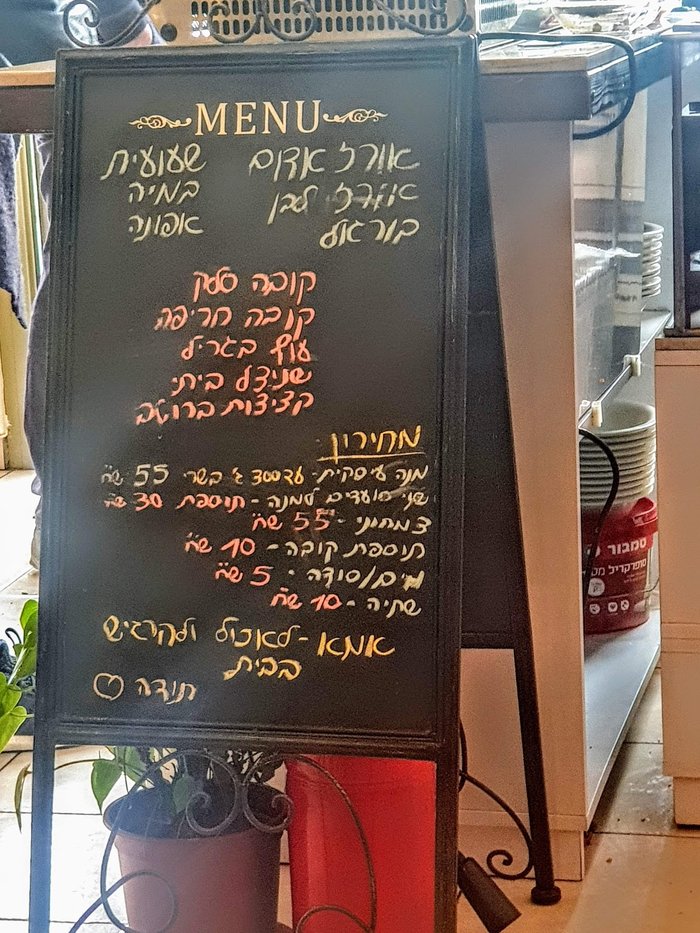 MENU
אורז אדום שעועית
אורז לבן במיה
בורגול אפונה
קובה סלק
קובה חריפה
עוף בגריל
שניצל ביתי
קציצות ברוטב
מחירון
מנה עיסקית - עד 300 ג' בשרי 55 ש"ח
שני סועדים למנה - תוספת 30 ש"ח
צמחוני - 55 ש"ח
תוספת קובה - 10 ש"ח
מים/סודה - 5 ש"ח
שתיה - 10 ש"ח
אמא - לאכול ולהרגיש
בבית
תודה
טמבור
סופרקריל